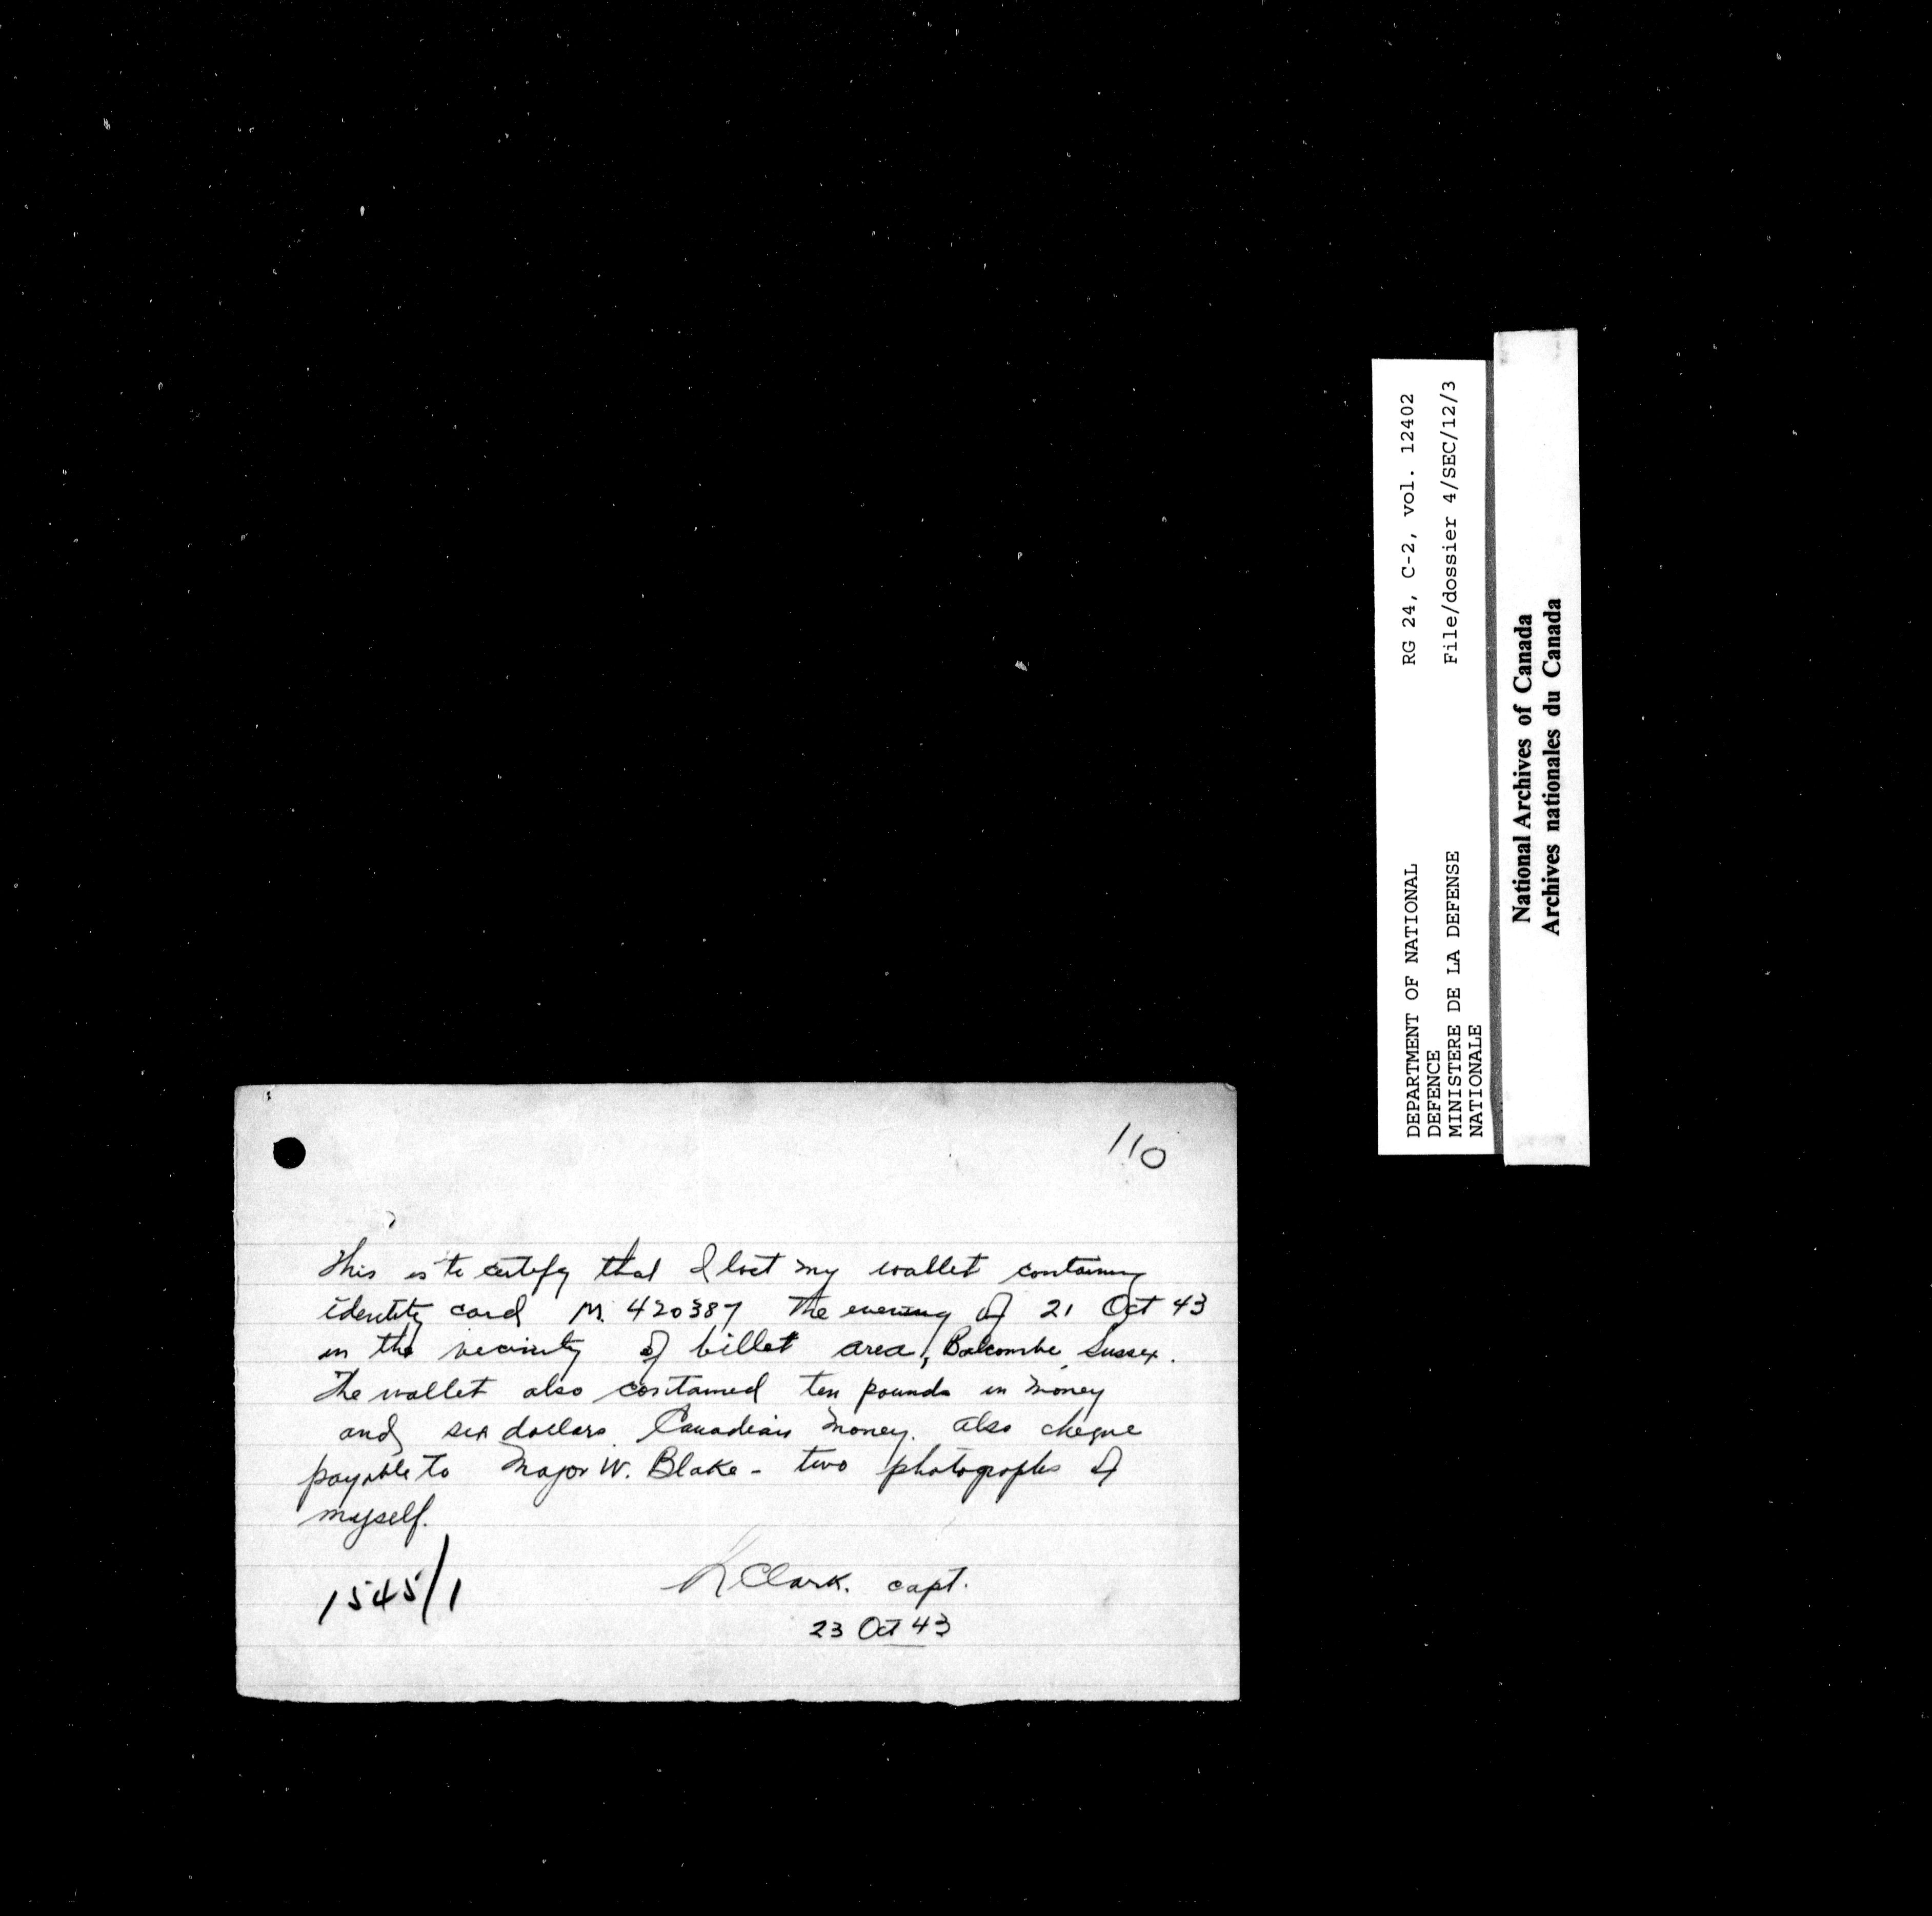 110
This is to certify that I lost my wallet containing
identity card M. 420387 The evening of 21 Oct 43
in the vicinity of billet area, Balcombe, Sussex.
The wallet also contained ten pounds in money
and six dollars Canadian money. also cheque
payable to Major W. Blake - two photographs of
myself.
1545/1
K Clark. capt.
23 Oct 43
DEPARTMENT OF NATIONAL
DEFENCE
MINISTERE DE LA DEFENSE
NATIONALE
RG 24, C-2, vol. 12402
File/dossier 4/SEC/12/3
National Archives of Canada
Archives nationales du Canada